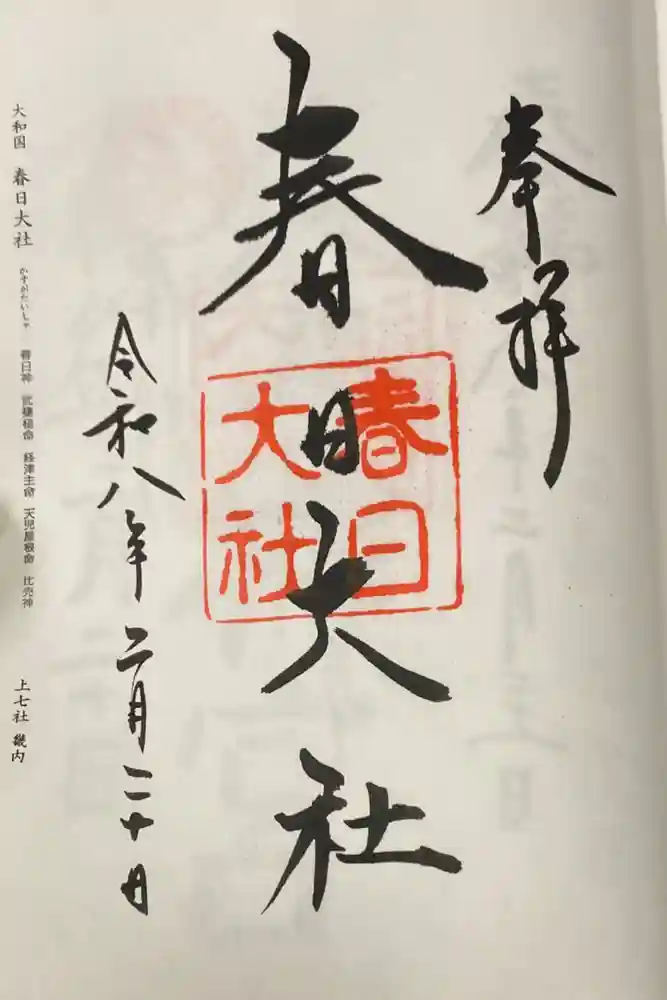 奉拝
春日大社
春日
大社
令和八年二月二十日
大和国 春日大社 かすがたいしゃ 春日神 武甕槌命 経津主命 天児屋根命 比売神 上七社 畿内